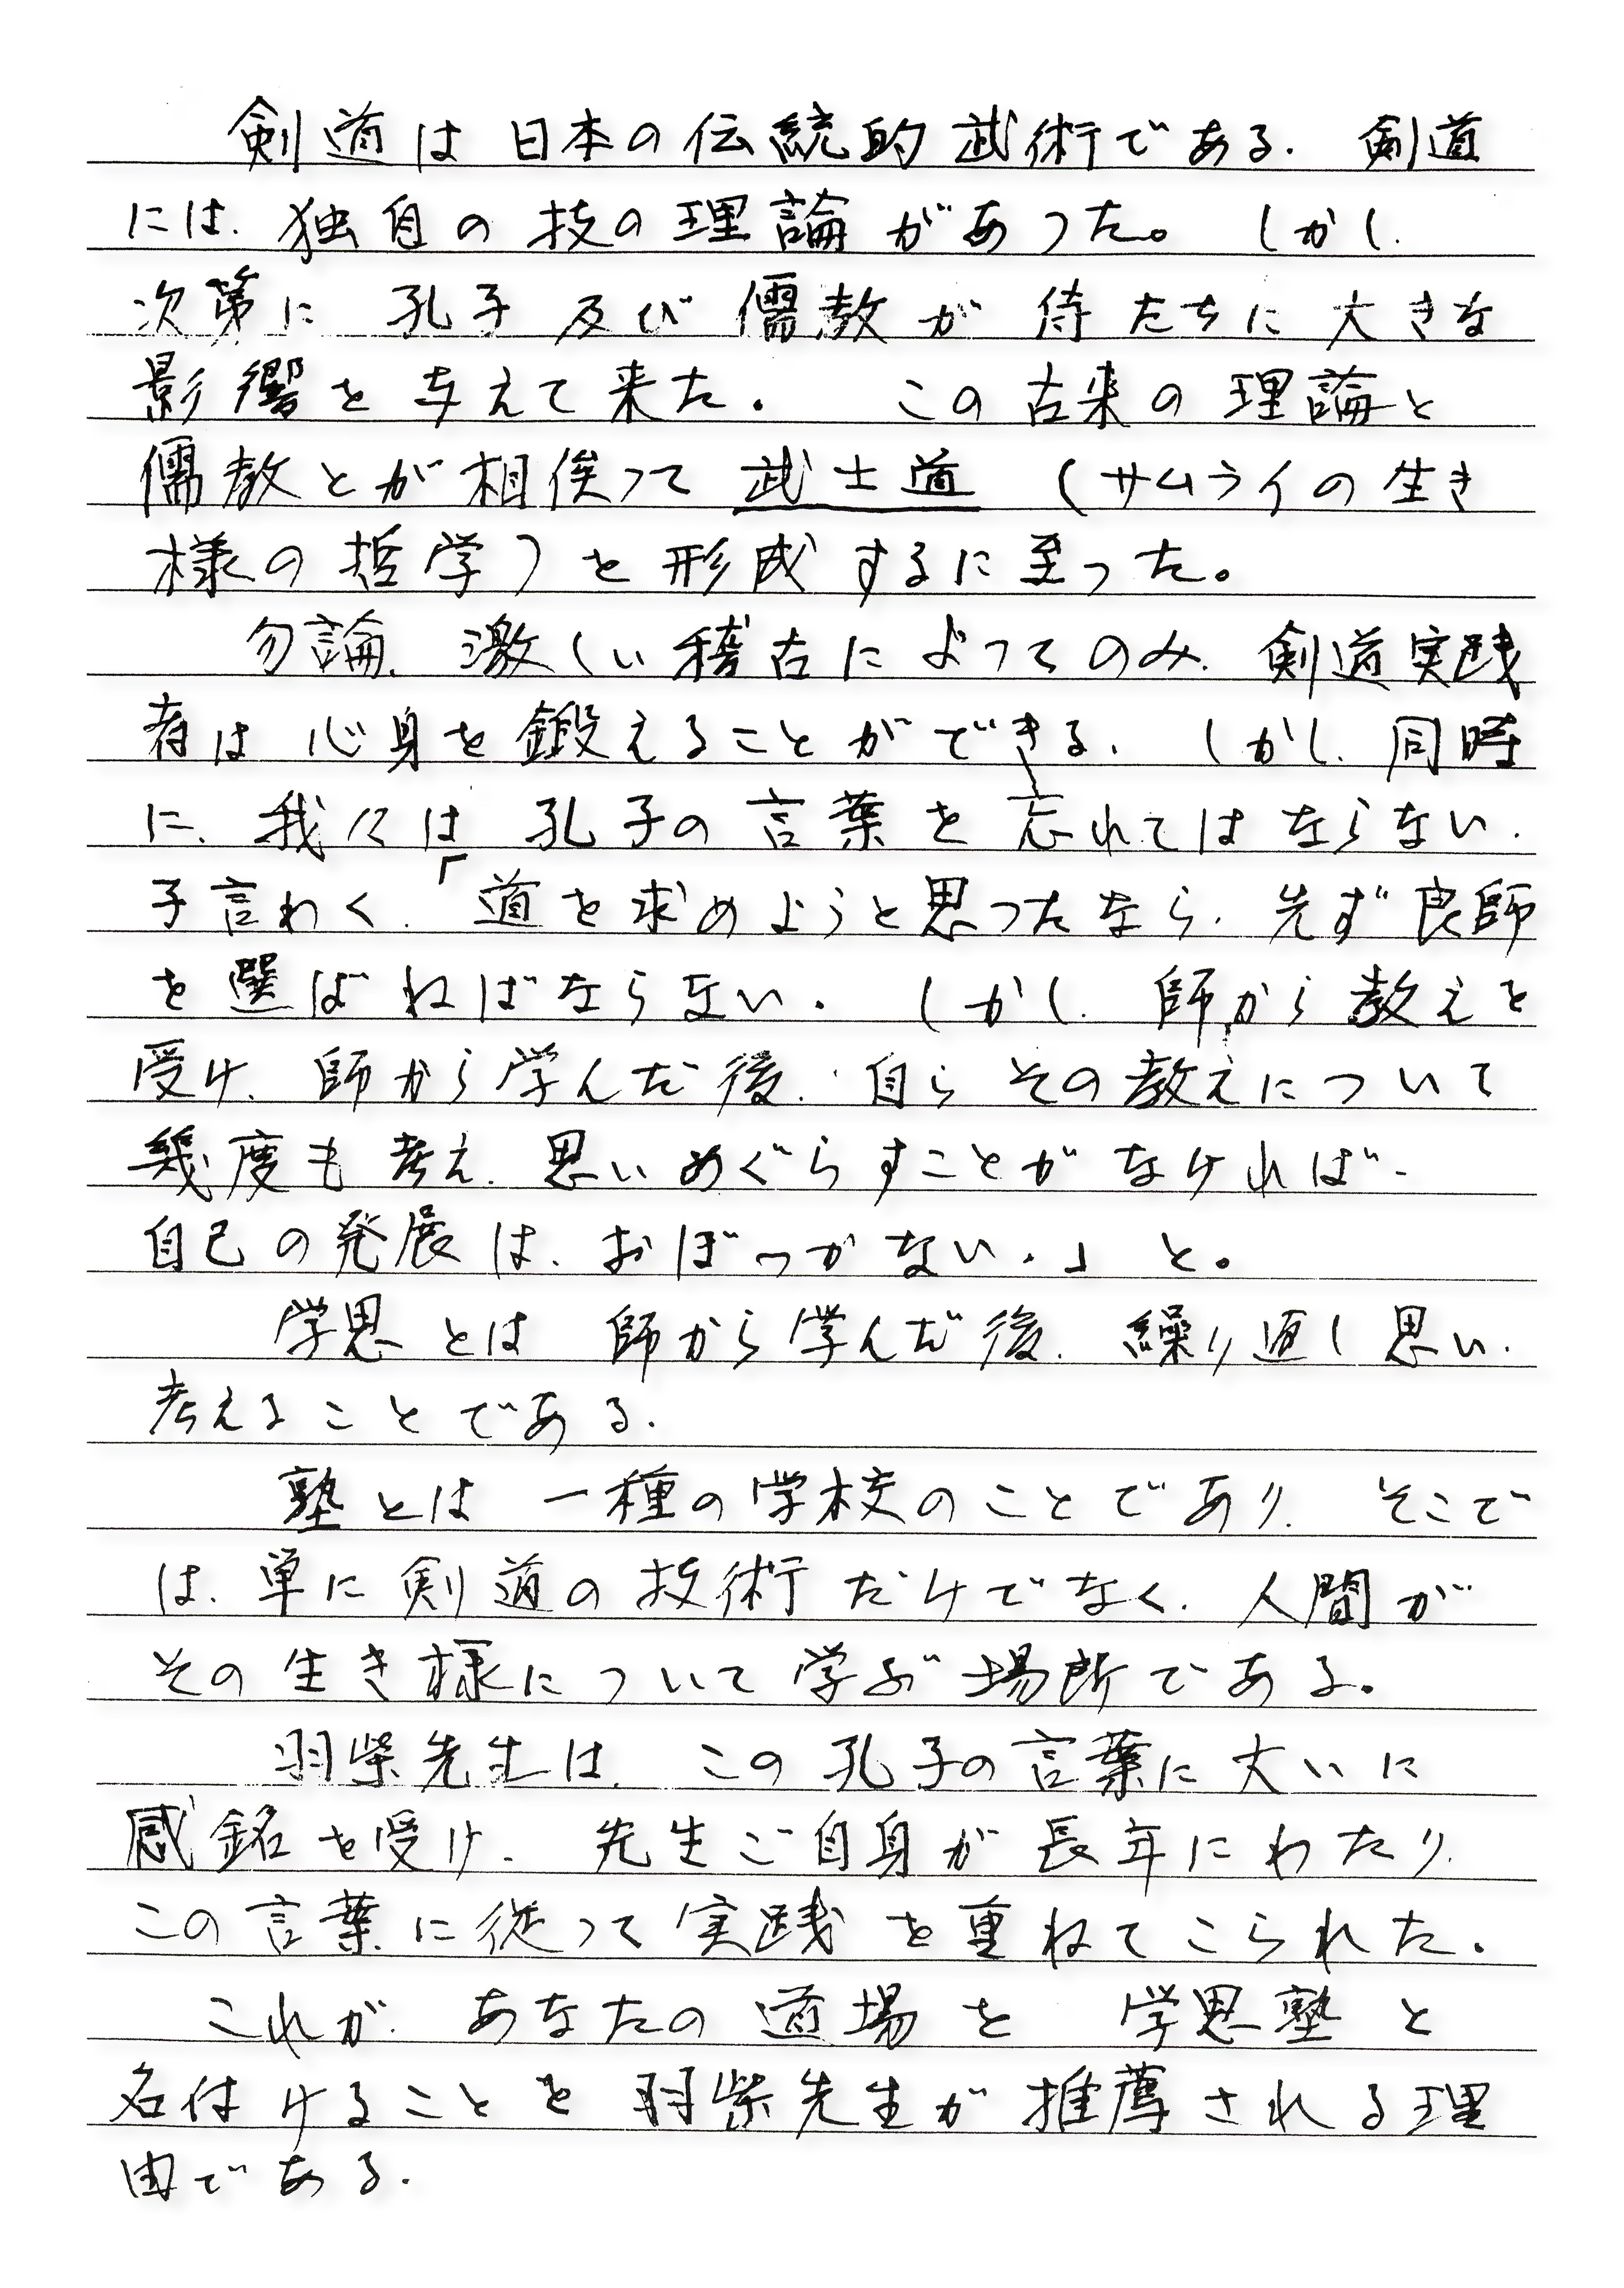 剣道は日本の伝統的武術である.剣道
には.独自の技の理論があった。しかし.
次第に孔子及び儒教が侍たちに大きな
影響を与えて来た.この古来の理論と
儒教とが相俟って武士道(サムライの生き
様の哲学)を形成するに至った。
勿論.激しい稽古によってのみ.剣道実践
者は心身を鍛えることができる.しかし.同時
に.我々は孔子の言葉を忘れてはならない.
子言わく.「道を求めようと思ったなら.先ず良師
を選ばねばならない.しかし.師から教えを
受け.師から学んだ後.自らその教えについて
幾度も考え.思いめぐらすことがなければ.
自己の発展は.おぼつかない.」と。
学思とは師から学んだ後.繰り返し思い.
考えることである.
塾とは一種の学校のことであり.そこで
は.単に剣道の技術だけでなく.人間が
その生き様について学ぶ場所である。
羽柴先生は.この孔子の言葉に大いに
感銘を受け.先生ご自身が長年にわたり.
この言葉に従って実践を重ねてこられた.
これが.あなたの道場を学思塾と
名付けることを羽柴先生が推薦される理
由である.